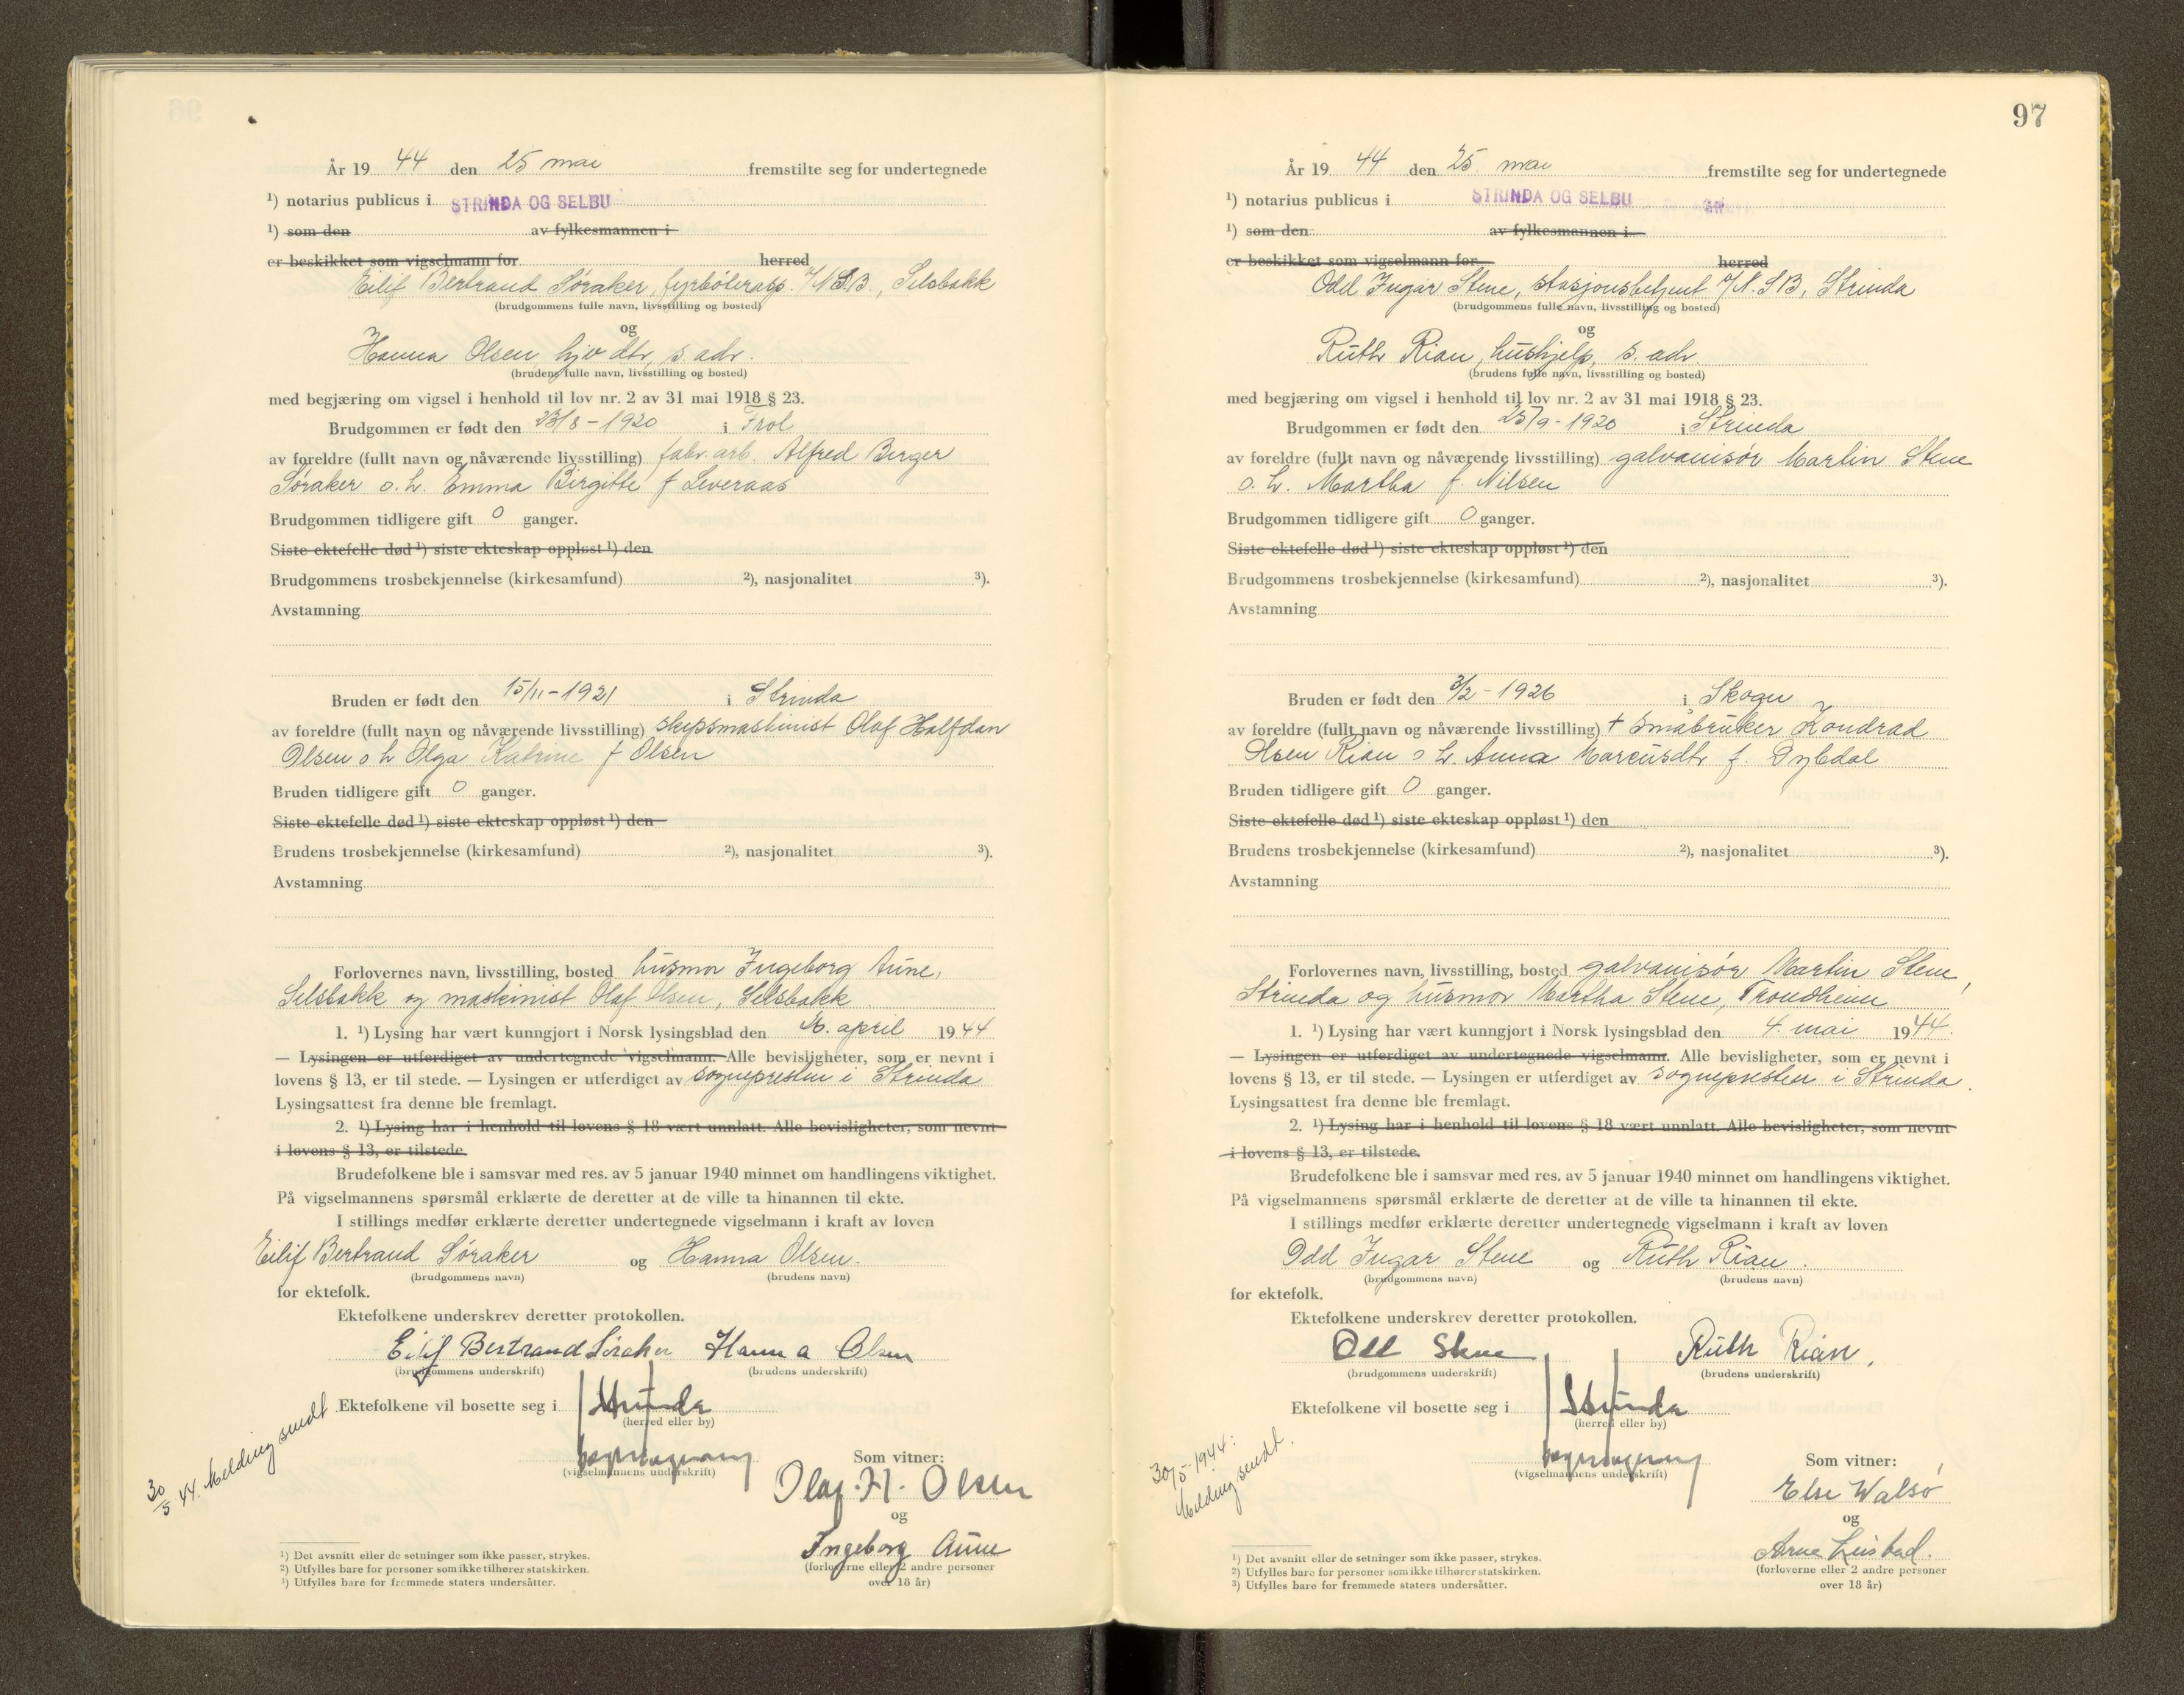 År 19 44 den 25 mai fremstilte seg for undertegnede
¹) notarius publicus i STRINDA OG SELBU
¹) som den av fylkesmannen i
er beskikket som vigselmann for herred
Eilif Bertrand Søraker, fyrbøterasp. v/N.S.B., Selsbakk
(brudgommens fulle navn, livsstilling og bosted)
og
Hanna Olsen hjv dtr, s. adr.
(brudens fulle navn, livsstilling og bosted)
med begjæring om vigsel i henhold til lov nr. 2 av 31 mai 1918 § 23.
Brudgommen er født den 23/8 - 1920 i Frol
av foreldre (fullt navn og nåværende livsstilling) fabr. arb. Alfred Berger
Søraker o. h. Emma Birgitte f Leveraas
Brudgommen tidligere gift 0 ganger.
Siste ektefelle død ¹) siste ekteskap oppløst ¹) den
Brudgommens trosbekjennelse (kirkesamfund) ²), nasjonalitet ³).
Avstamning
Bruden er født den 15/11 - 1921 i Strinda
av foreldre (fullt navn og nåværende livsstilling) skipsmaskinist Olaf Halfdan
Olsen o h Olga Katrine f Olsen
Bruden tidligere gift 0 ganger.
Siste ektefelle død ¹) siste ekteskap oppløst ¹) den
Brudens trosbekjennelse (kirkesamfund) ²), nasjonalitet ³).
Avstamning
Forlovernes navn, livsstilling, bosted husmor Ingeborg Aune,
Selsbakk og maskinist Olaf Olsen, Selsbakk
1. ¹) Lysing har vært kunngjort i Norsk lysingsblad den april 1944
— Lysingen er utferdiget av undertegnede vigselmann. Alle bevisligheter, som er nevnt i
lovens § 13, er til stede. — Lysingen er utferdiget av sognepresten i Strinda
Lysingsattest fra denne ble fremlagt.
2. ¹) Lysing har i henhold til lovens § 18 vært unnlatt. Alle bevisligheter, som nevnt
i lovens § 13, er tilstede.
Brudefolkene ble i samsvar med res. av 5 januar 1940 minnet om handlingens viktighet.
På vigselmannens spørsmål erklærte de deretter at de ville ta hinannen til ekte.
I stillings medfør erklærte deretter undertegnede vigselmann i kraft av loven
Eilif Bertrand Søraker og Hanna Olsen.
(brudgommens navn) (brudens navn)
for ektefolk.
Ektefolkene underskrev deretter protokollen.
Eilif Bertrand Søraker Hanna Olsen
(brudgommens underskrift) (brudens underskrift)
Ektefolkene vil bosette seg i Strinda
(herred eller by)
30/5 44. Melding sendt
(vigselmannens underskrift)
Som vitner:
Olaf. H. Olsen
og
Ingeborg Aune
(forloverne eller 2 andre personer
over 18 år)
¹) Det avsnitt eller de setninger som ikke passer, strykes.
²) Utfylles bare for personer som ikke tilhører statskirken.
³) Utfylles bare for fremmede staters undersåtter.
97
År 19 44 den 25. mai fremstilte seg for undertegnede
¹) notarius publicus i STRINDA OG SELBU
¹) som den av fylkesmannen i
er beskikket som vigselmann for herred
Odd Ingar Stene, stasjonsbetjent v/N.S.B, Strinda
(brudgommens fulle navn, livsstilling og bosted)
og
Ruth Rian, hushjelp, s. adr.
(brudens fulle navn, livsstilling og bosted)
med begjæring om vigsel i henhold til lov nr. 2 av 31 mai 1918 § 23.
Brudgommen er født den 25/9 - 1920 i Strinda
av foreldre (fullt navn og nåværende livsstilling) galvanisør Martin Stene
o. h. Martha f. Nilsen
Brudgommen tidligere gift 0 ganger.
Siste ektefelle død ¹) siste ekteskap oppløst ¹) den
Brudgommens trosbekjennelse (kirkesamfund) ²), nasjonalitet ³).
Avstamning
Bruden er født den 3/2 - 1926 i Skogn
av foreldre (fullt navn og nåværende livsstilling) + småbruker Kondrad
Olsen Rian o h. Anna Marcusdtr f. Dybdal
Bruden tidligere gift 0 ganger.
Siste ektefelle død ¹) siste ekteskap oppløst ¹) den
Brudens trosbekjennelse (kirkesamfund) ²), nasjonalitet ³).
Avstamning
Forlovernes navn, livsstilling, bosted galvanisør Martin Stene,
Strinda og husmor Martha Stene, Trondheim
1. ¹) Lysing har vært kunngjort i Norsk lysingsblad den 4. mai 1944.
— Lysingen er utferdiget av undertegnede vigselmann. Alle bevisligheter, som er nevnt i
lovens § 13, er til stede. — Lysingen er utferdiget av sognepresten i Strinda.
Lysingsattest fra denne ble fremlagt.
2. ¹) Lysing har i henhold til lovens § 18 vært unnlatt. Alle bevisligheter, som nevnt
i lovens § 13, er tilstede.
Brudefolkene ble i samsvar med res. av 5 januar 1940 minnet om handlingens viktighet.
På vigselmannens spørsmål erklærte de deretter at de ville ta hinannen til ekte.
I stillings medfør erklærte deretter undertegnede vigselmann i kraft av loven
Odd Ingar Stene og Ruth Rian.
(brudgommens navn) (brudens navn)
for ektefolk.
Ektefolkene underskrev deretter protokollen.
Odd Stene Ruth Rian.
(brudgommens underskrift) (brudens underskrift)
Ektefolkene vil bosette seg i Strinda
(herred eller by)
30/5-1944:
Melding sendt.
(vigselmannens underskrift)
Som vitner:
Else Walsø
og
Arne
(forloverne eller 2 andre personer
over 18 år)
¹) Det avsnitt eller de setninger som ikke passer, strykes.
²) Utfylles bare for personer som ikke tilhører statskirken.
³) Utfylles bare for fremmede staters undersåtter.